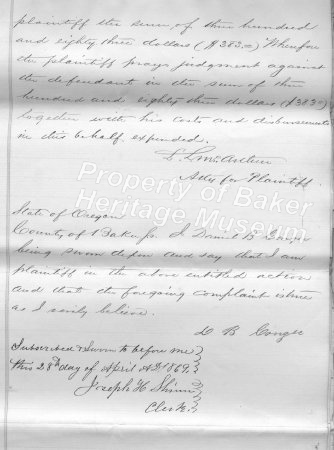 plaintiff the sum of three hundred
and eighty three dollars ($383.00) Wherefore
the plaintiff prays judgment against
the defendant in the sum of three
hundred and eighty three dollars ($383.00)
together with his costs and disbursements
in this behalf expended.
Atty for Plaintiff
State of Oregon
County of Baker ss. I Daniel B
being sworn depose and say that I am
plaintiff in the above entitled action
and that the foregoing complaint is true
as I verily believe.
D B
Subscribed & Sworn to before me
this 28th day of April AD 1869.
Joseph H Shinn
Clerk.
Property of Baker
Heritage Museum